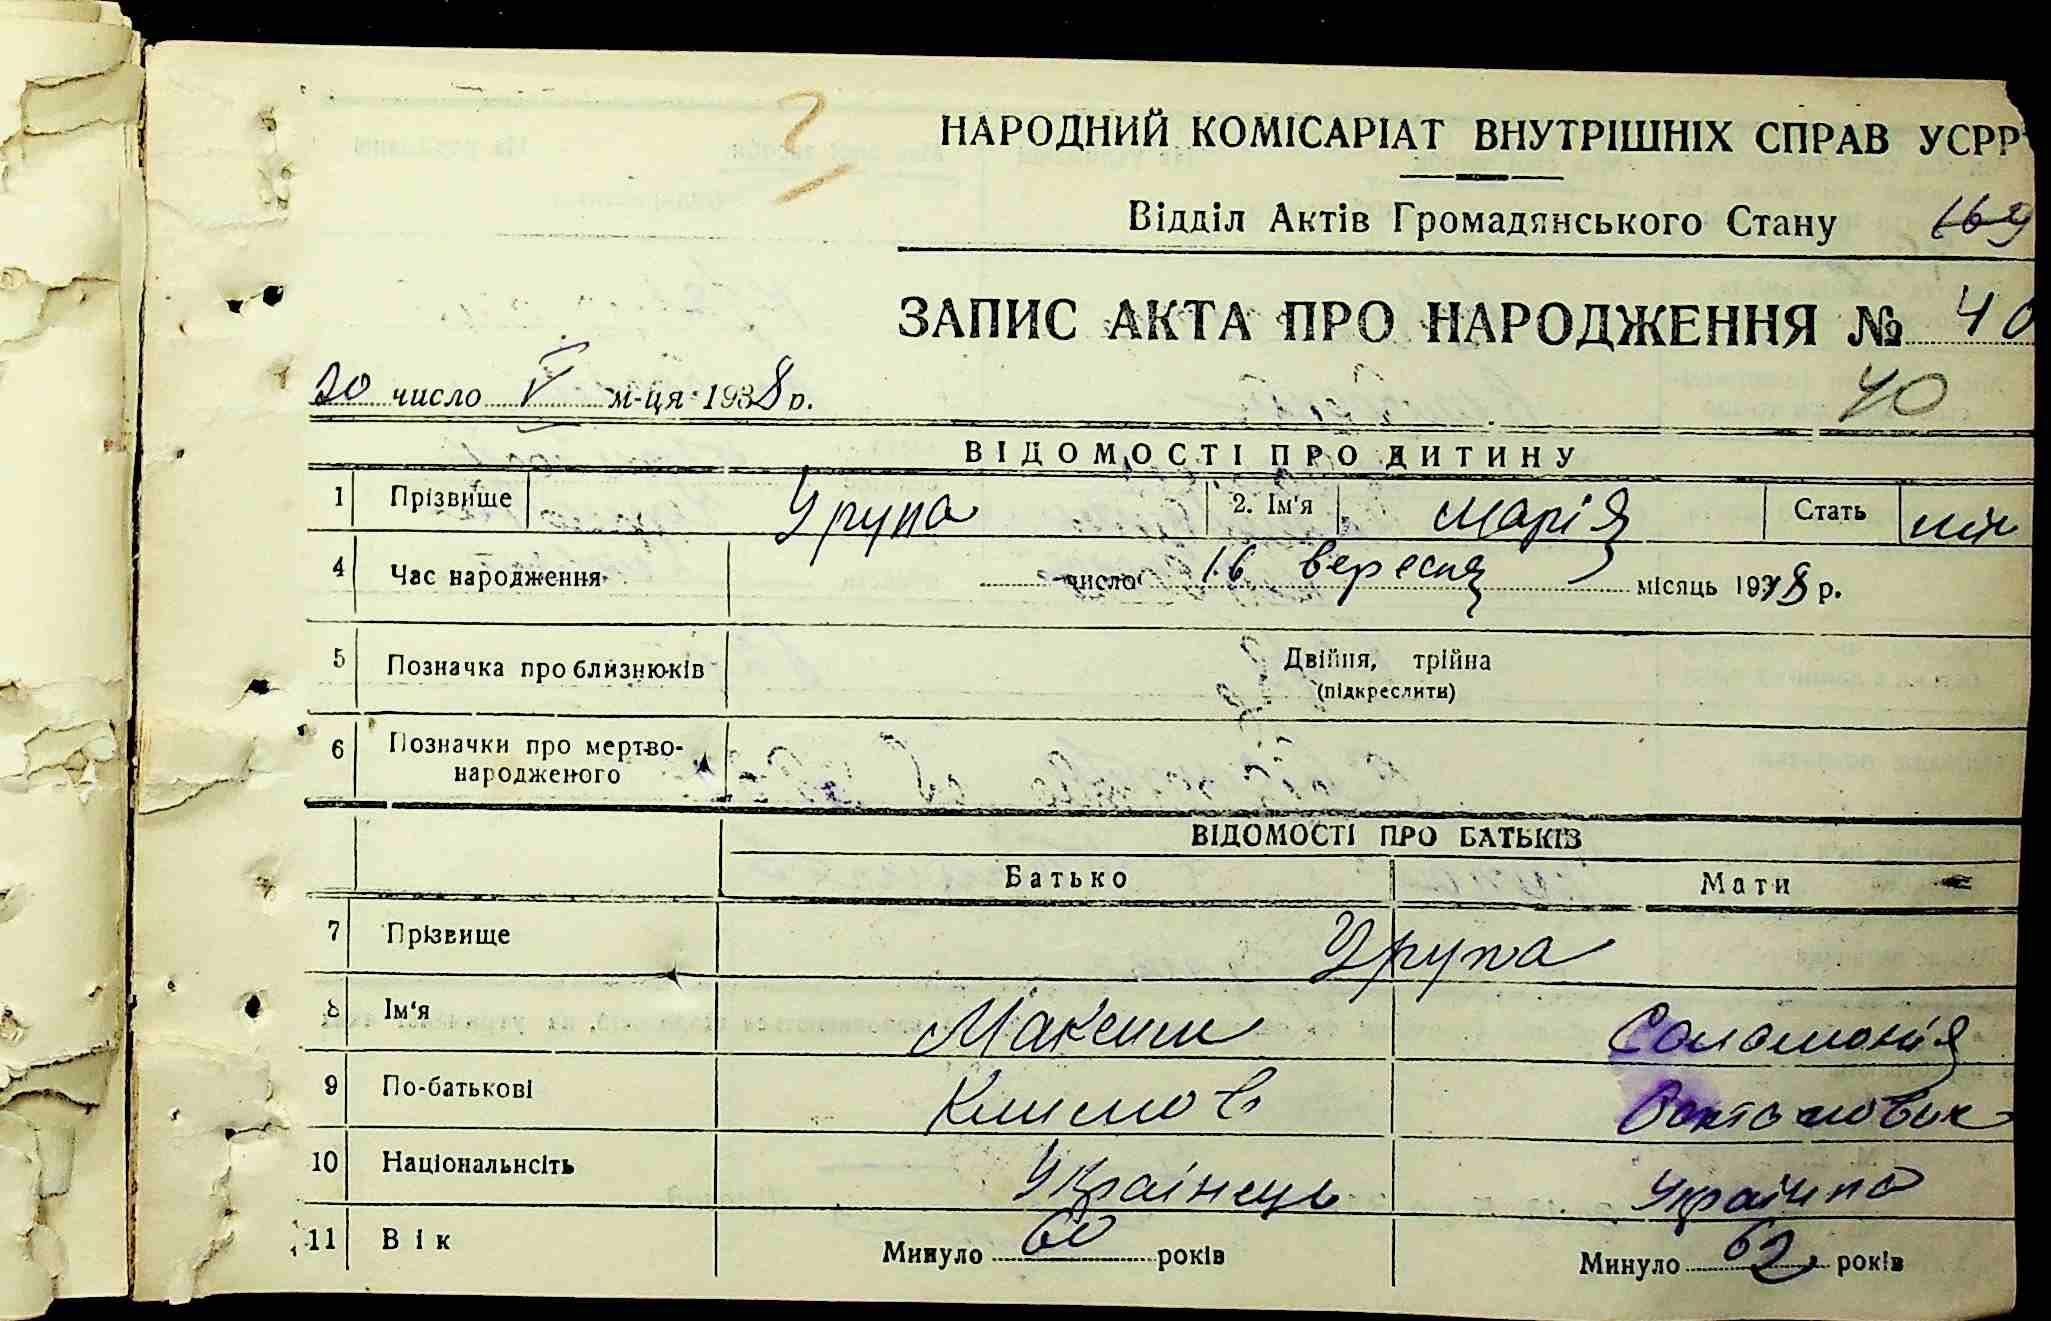 НАРОДНИЙ КОМІСАРІАТ ВНУТРІШНІХ СПРАВ УСРР
Відділ Актів Громадянського Стану 169
ЗАПИС АКТА ПРО НАРОДЖЕННЯ № 40
20 число V м-ця 1938 р. 40
ВІДОМОСТІ ПРО ДИТИНУ
1 Прізвище Урупа 2. Ім'я Марія Стать жін
4 Час народження число 16 вересня місяць 1918 р.
5 Позначка про близнюків Двійня, трійна
(підкреслити)
6 Позначки про мертво-
народженого
ВІДОМОСТІ ПРО БАТЬКІВ
Батько Мати
7 Прізвище Урупа
8 Ім'я Максим Соломонія
9 По-батькові Климов
10 Національнсіть Українець Українка
11 Вік Минуло 60 років Минуло 62 років